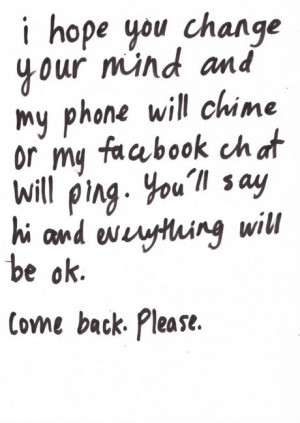 i hope you change
your mind and
my phone will chime
or my facebook chat
will ping. You'll say
hi and everything will
be ok.
Come back. Please.